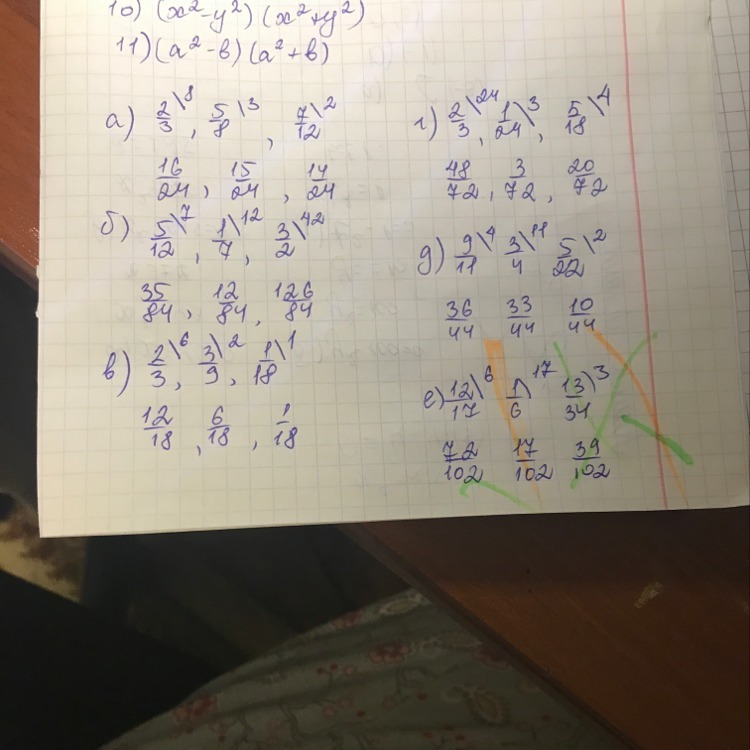 10) (x²-y²)(x²+y²)
11) (a²-в)(a²+в)
а) 2/3\8, 5/8\3, 7/12\2
16/24, 15/24, 14/24
б) 5/12\7, 1/7\12, 3/2\42
35/84, 12/84, 126/84
в) 2/3\6, 3/9\2, 1/18\1
12/18, 6/18, 1/18
г) 2/3\24, 1/24\3, 5/18\4
48/72, 3/72, 20/72
д) 9/11\4 3/4\11 5/22\2
36/44 33/44 10/44
е) 12/17\6 1/6\17 13/34\3
72/102 17/102 39/102